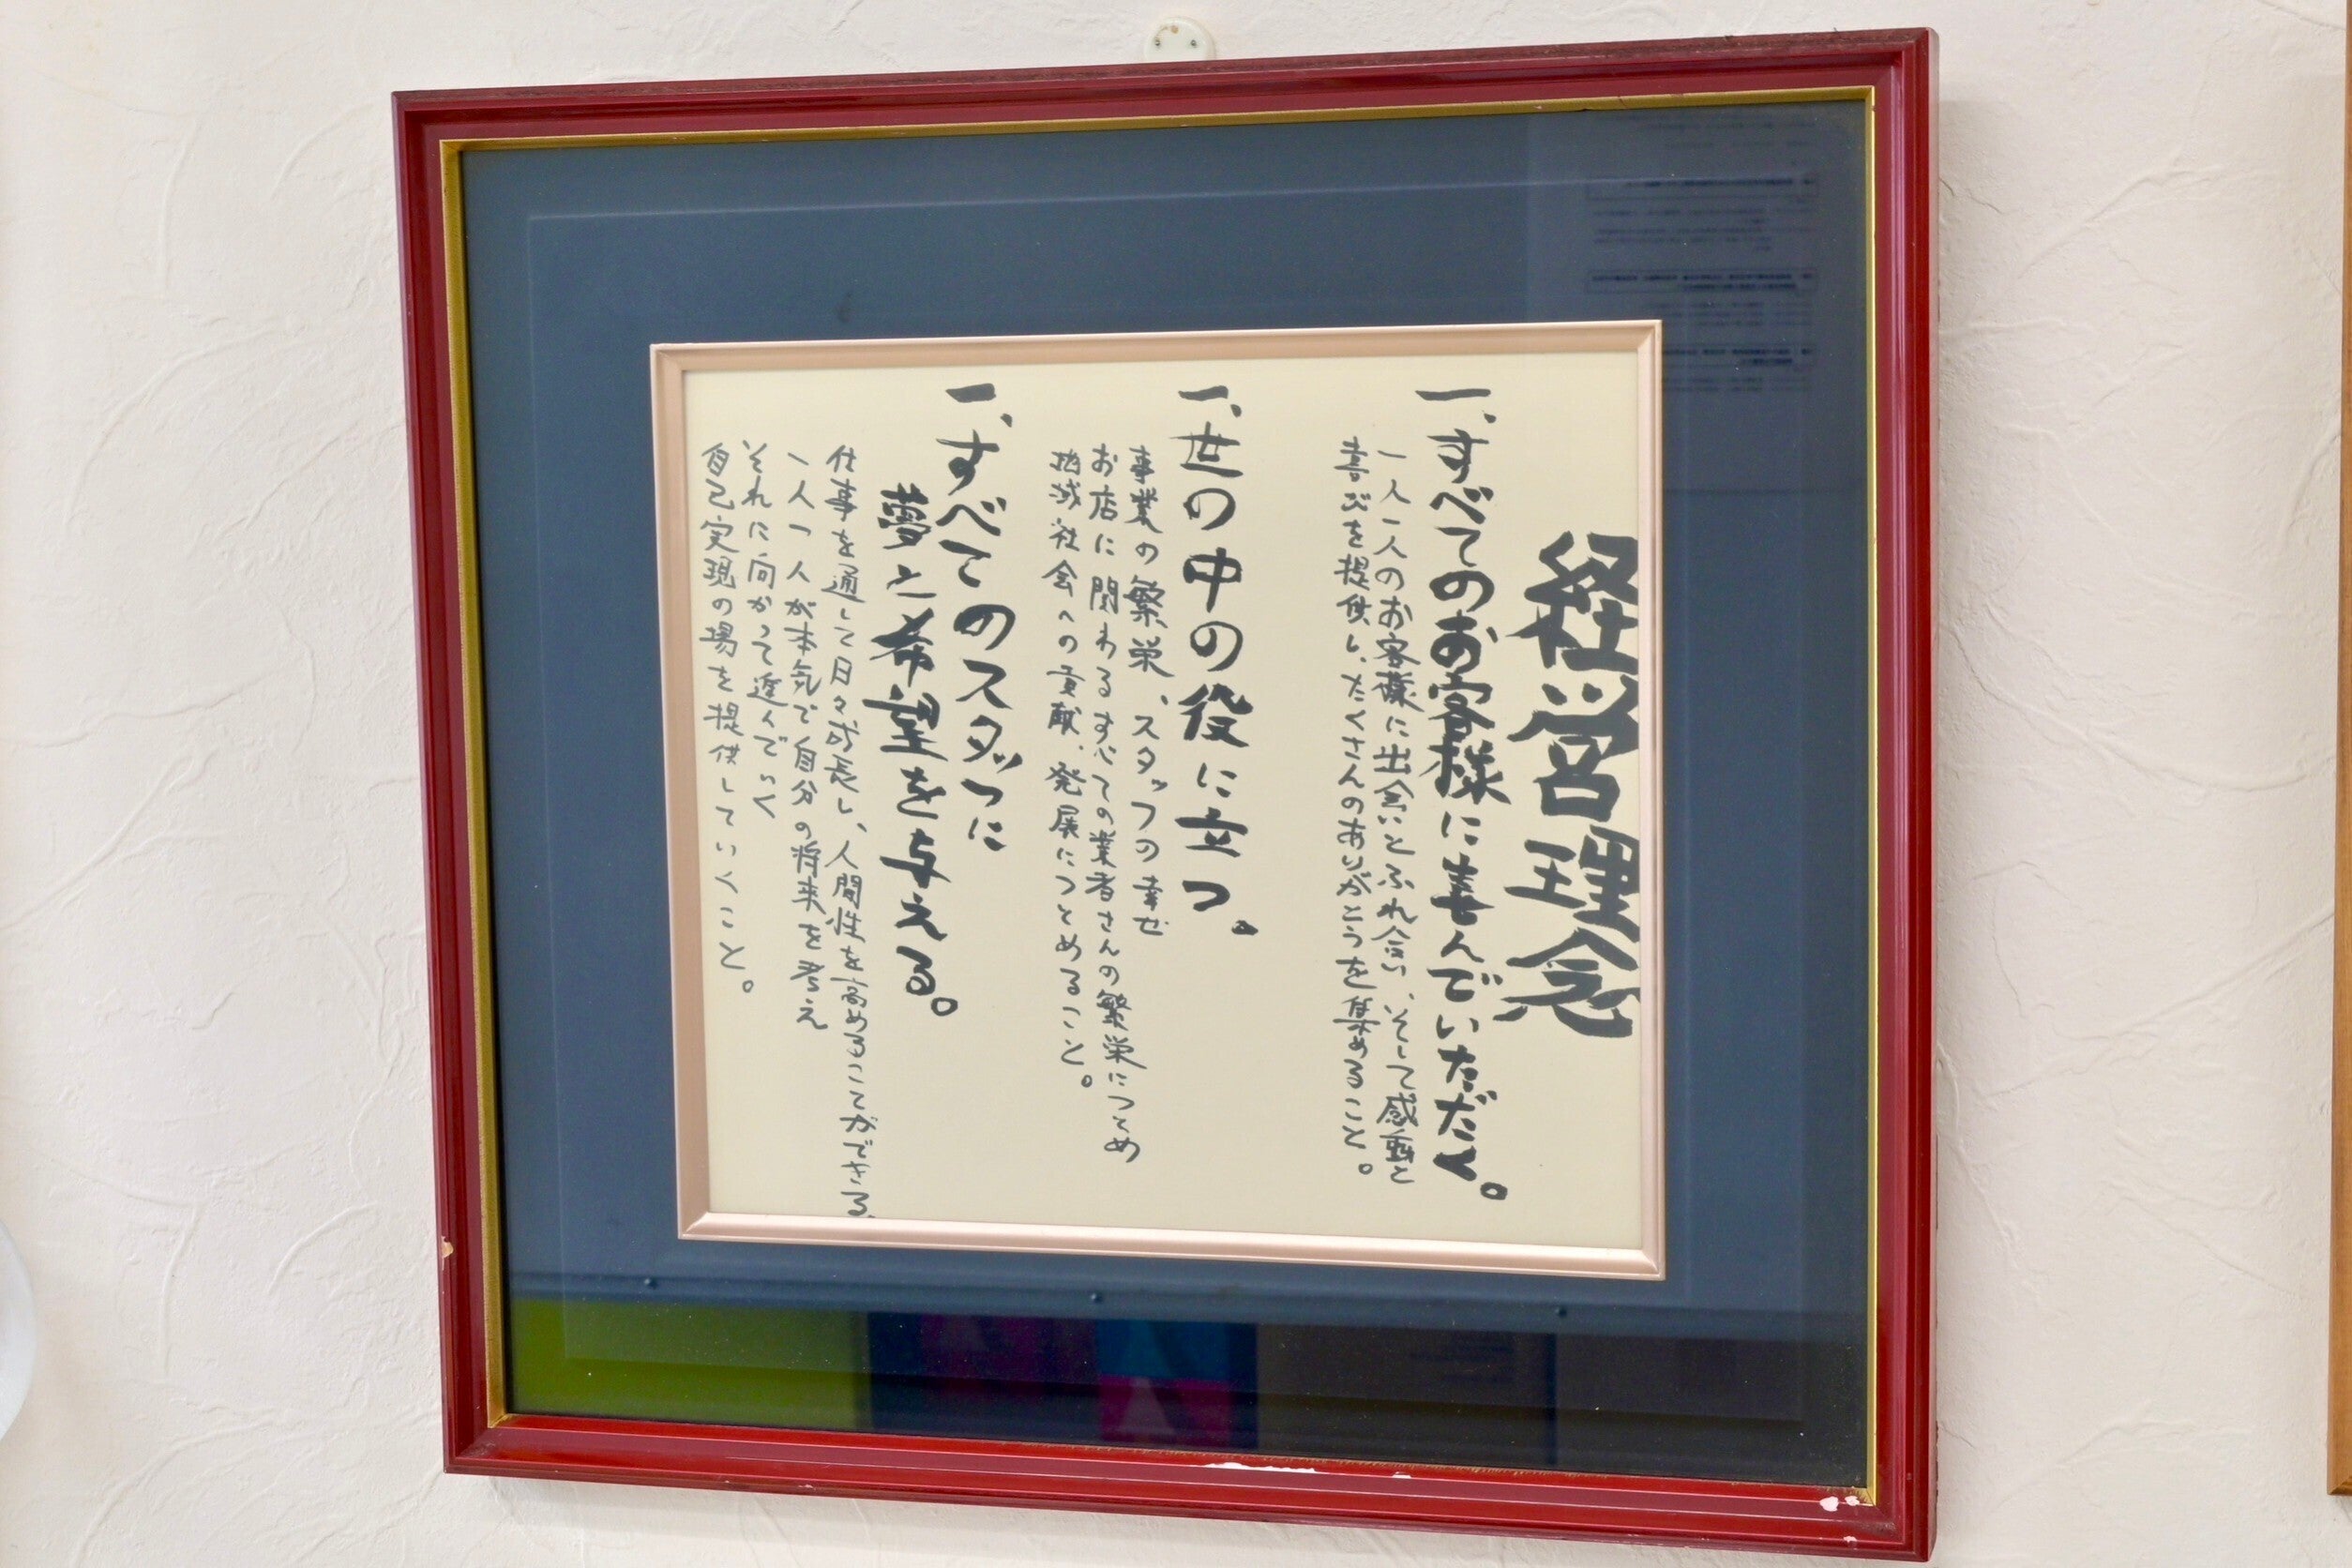 経営理念
一、すべてのお客様に喜んでいただく。
一人一人のお客様に出会いとふれ合い、そして感動と
喜びを提供し、たくさんのありがとうを集めること。
一、世の中の役に立つ。
事業の繁栄、スタッフの幸せ
お店に関わるすべての業者さんの繁栄につとめ
地域社会への貢献、発展につとめること。
一、すべてのスタッフに
夢と希望を与える。
仕事を通して日々成長し、人間性を高めることができる、
一人一人が本気で自分の将来を考え
それに向かって進んでいく
自己実現の場を提供していくこと。